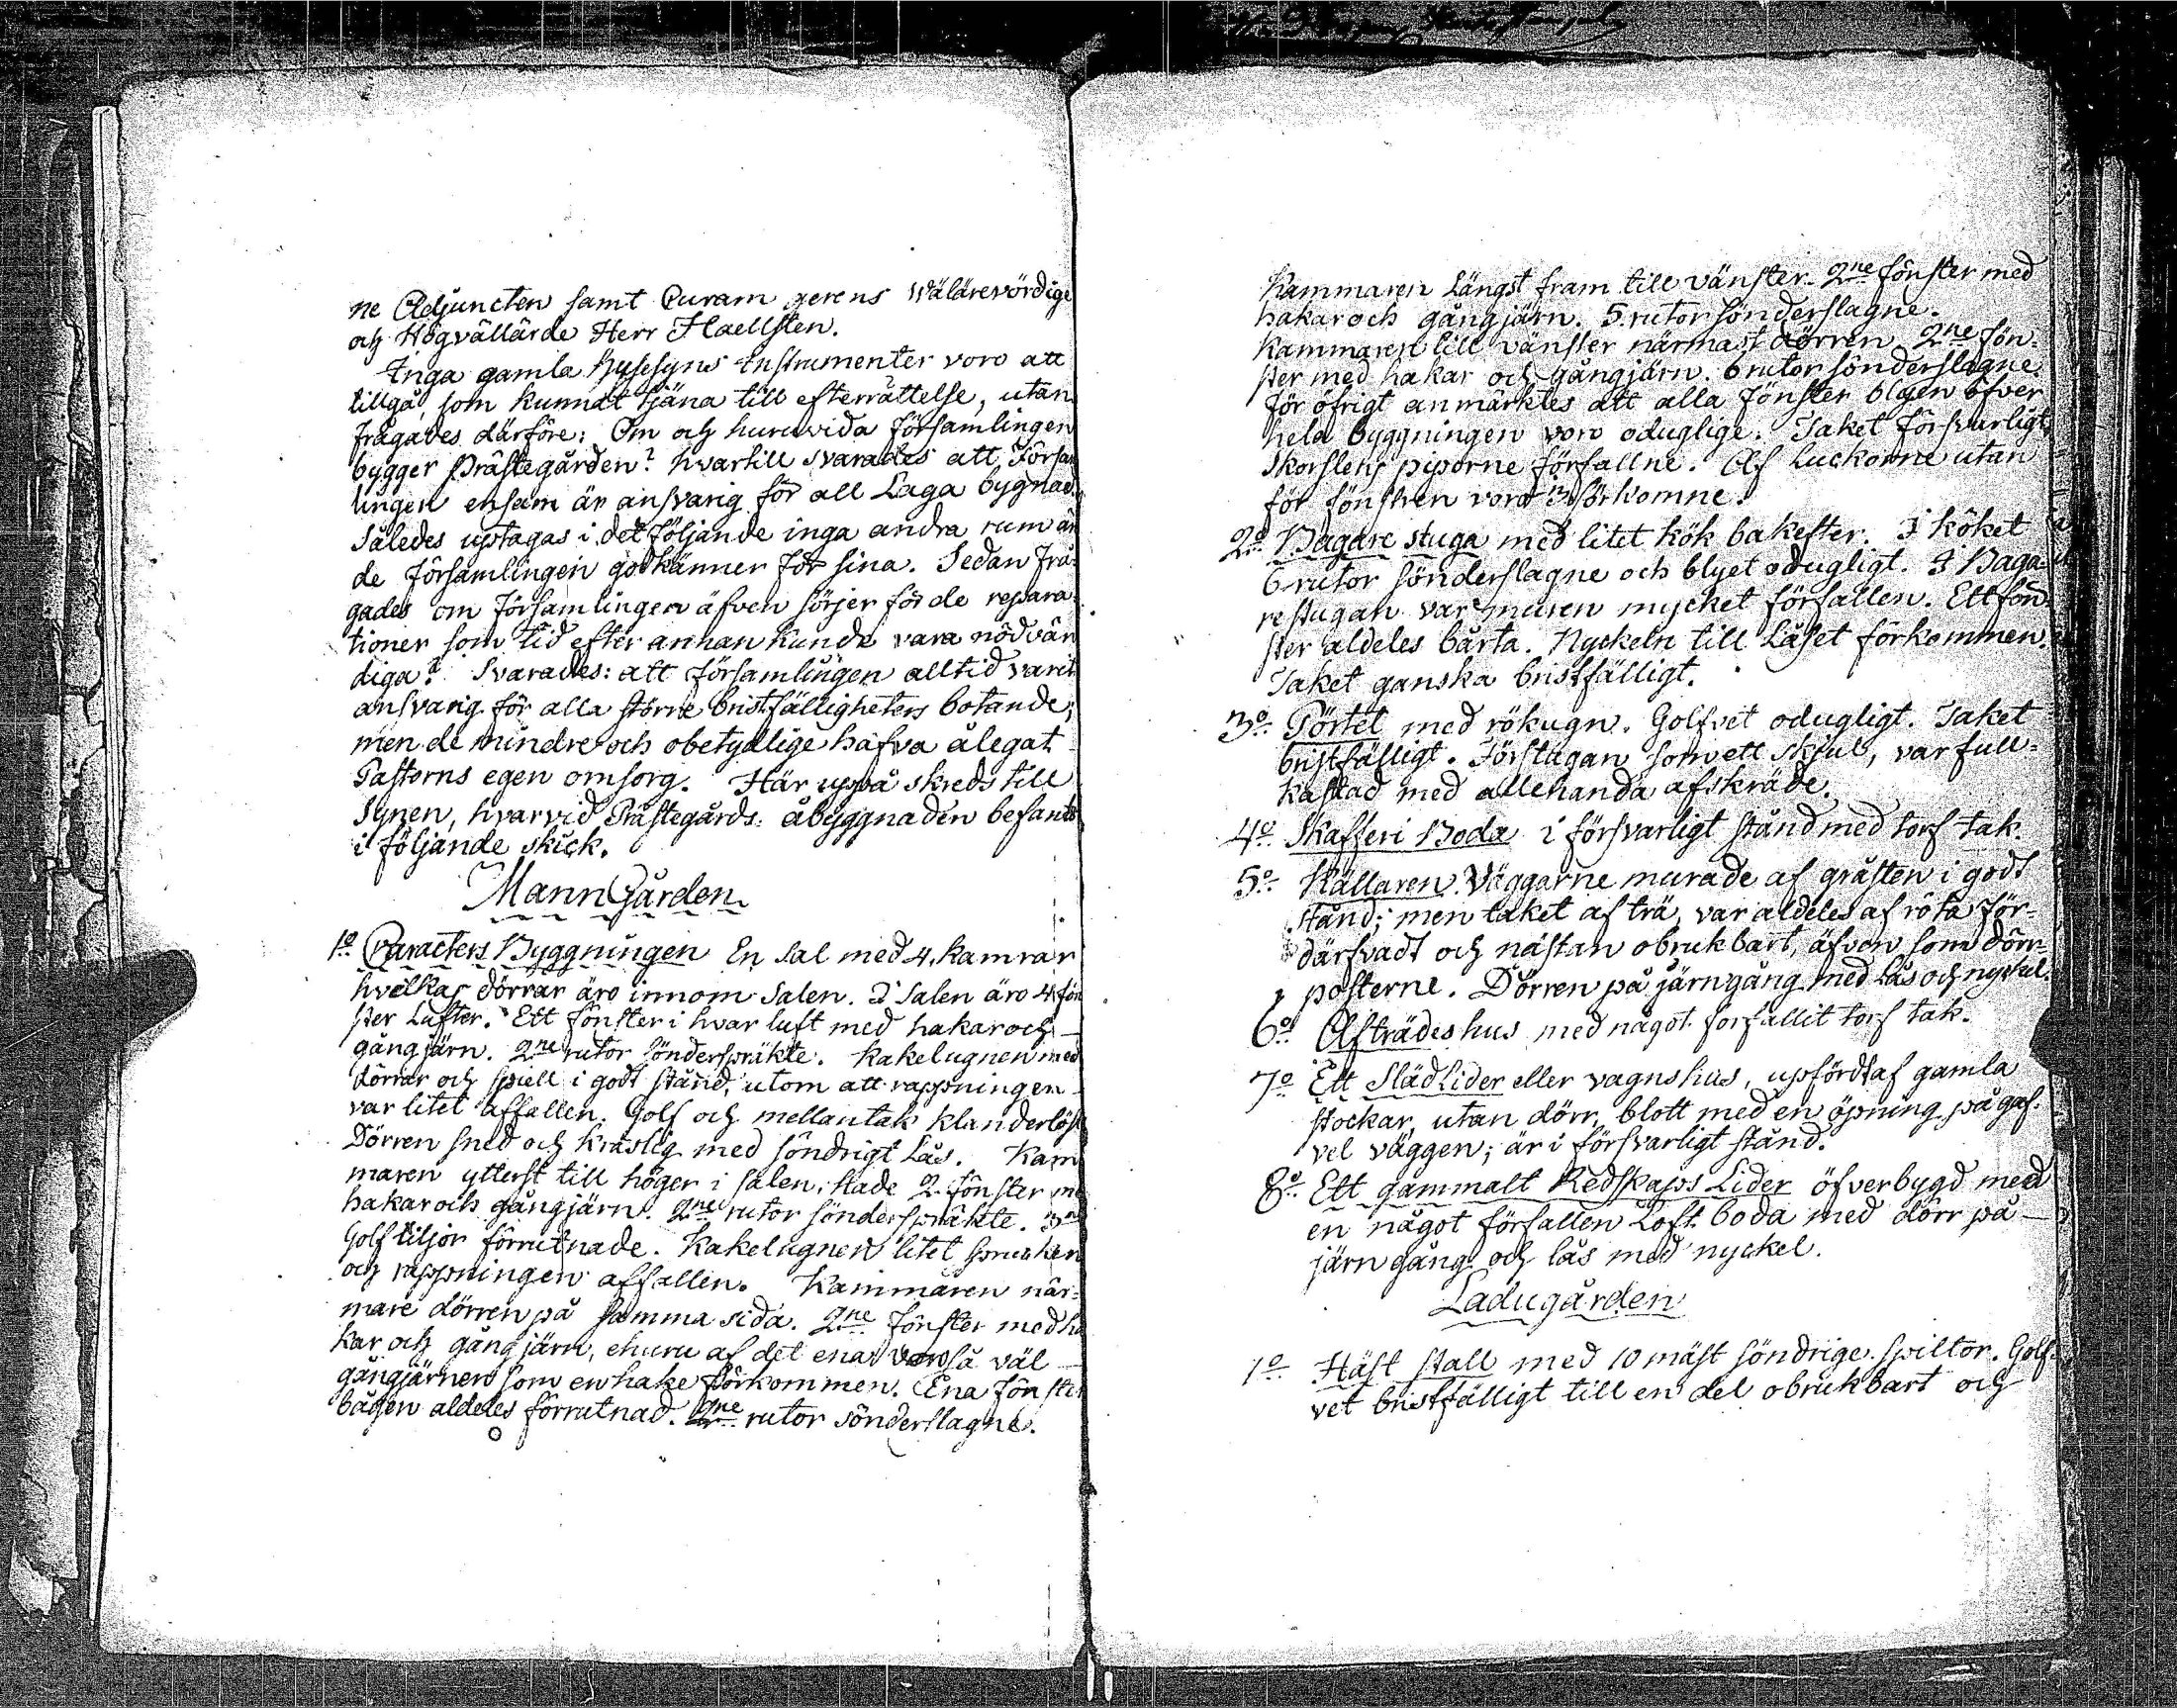 ne Adjuncten samt Curam gerens Wälärevördige
och Högvällärde Herr Haellsten.
Inga gamla Husesyns Instrumenter voro att
tillgå, som kunnat tjäna till efterrättelse, utan
frågades därföre: Om och huruvida Församlingen
bygger Prästegården? hvartill svarades att Försam
lingen ensam är ansvarig för all Laga bygnad.
Således uptagas i det följande inga andra rum än
de Församlingen godkänner för sina. Sedan frå-
gades om Församlingen äfven sörjer för de repara-
tioner som tid efter annan kunde vara nödvän
diga? Svarades: att Församlingen alltid varit
ansvarig för alla större bristfälligheters botande;
men de mindre och obetydlige hafva ålegat
Pastorns egen omsorg. Här uppå skreds till
Synen, hvarvid Prästegårds åbyggnaden befants
i följande skick.
MannGården.
1o Caracters Byggningen En Sal med 4 Kamrar
hvilkas dörrar äro innom Salen. I Salen äro 4 fön
ster Lufter. Ett fönster i hvar luft med hakar och
gångjärn. 2ne rutor sönderspräkte. Kakelugnen med
dörrar och spiell i godt stånd, utom att rappningen
var litet affallen. Golf och mellantak klanderlöst
Dörren sned och kraslig med söndrigt Lås. Kam
maren ytterst till höger i salen; hade 2 fönster me
hakar och gångjärn. 2ne rutor sönderspräkte. 3ne
Golf tiljor förrutnade. Kakelugnen litet sprucken
och rappningen affallen. Kammaren när-
mare dörren på samma sida. 2ne Fönster med ha
kar och gångjärn, ehuru af det ena så väl
gångjärnen som en hake förkommen. Ena Fönster
bågen aldeles förrutnad. 2ne rutor sönderslagne.
Kammaren Längst fram till vänster. 2ne fönster med
hakar och gångjärn. 5 rutor sönderslagne.
Kammaren till vänster närmast dörren 2ne Fön-
ster med hakar och gångjärn. 6 rutor sönderslagne.
För öfrigt anmärktes att alla Fönster blyen öfver
hela byggningen voro oduglige. Taket försvarligt,
Skorstens piporne förfallne. Af Luckorne utan
för fönstren voro 3 förkomne.
2o Bagare stuga med litet kök bakefter. I köket
6 rutor sönderslagne och blyet odugligt. I Baga-
restugan var muren mycket förfallen. Ett fön-
ster aldeles bårta. Nyckeln till Låset förkommen.
Taket ganska bristfälligt.
3o Pörtet med rökugn. Golfvet odugligt. Taket
bristfälligt. Förstugan som ett skjul, var full-
kastad med allehanda afskräde.
4o Skafferi Boda i försvarligt stånd med torf tak.
5o Källaren. Väggarne murade af gråsten i godt
stånd; men taket af trä, var aldeles af röta För-
därfvadt och nästan obrukbart, äfven som dörr-
posterne. Dörren på järngång med Lås och nyckel.
6o Afträdes hus med något förfallit torf tak.
7o Ett Släd Lider eller vagnshus, upfördt af gamla
stockar, utan dörr, blott med en öpning på gaf-
vel väggen; är i försvarligt stånd.
8o Ett gammalt Redskaps Lider öfverbygd med
en något förfallen Loft boda med dörr på
järn gång och lås med nyckel.
Ladugården
1o Häst stall med 10 mäst söndrige spiltor. Golf-
vet bristfälligt till en del obrukbart och